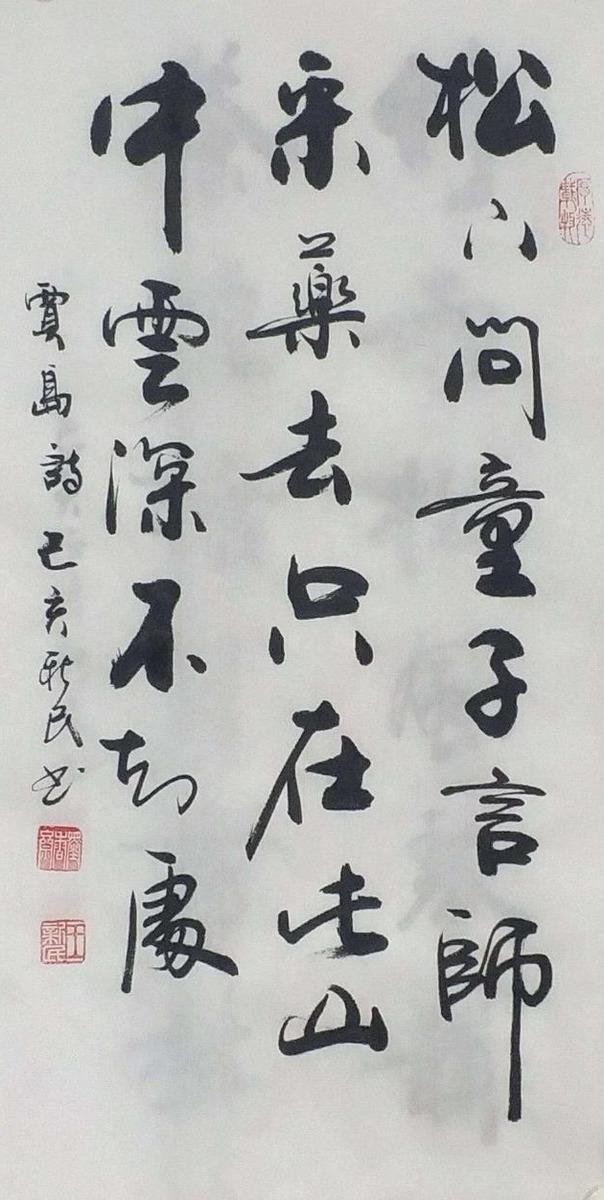 松下問童子言師
采藥去只在此山
中雲深不知處
賈島詩己亥新民書